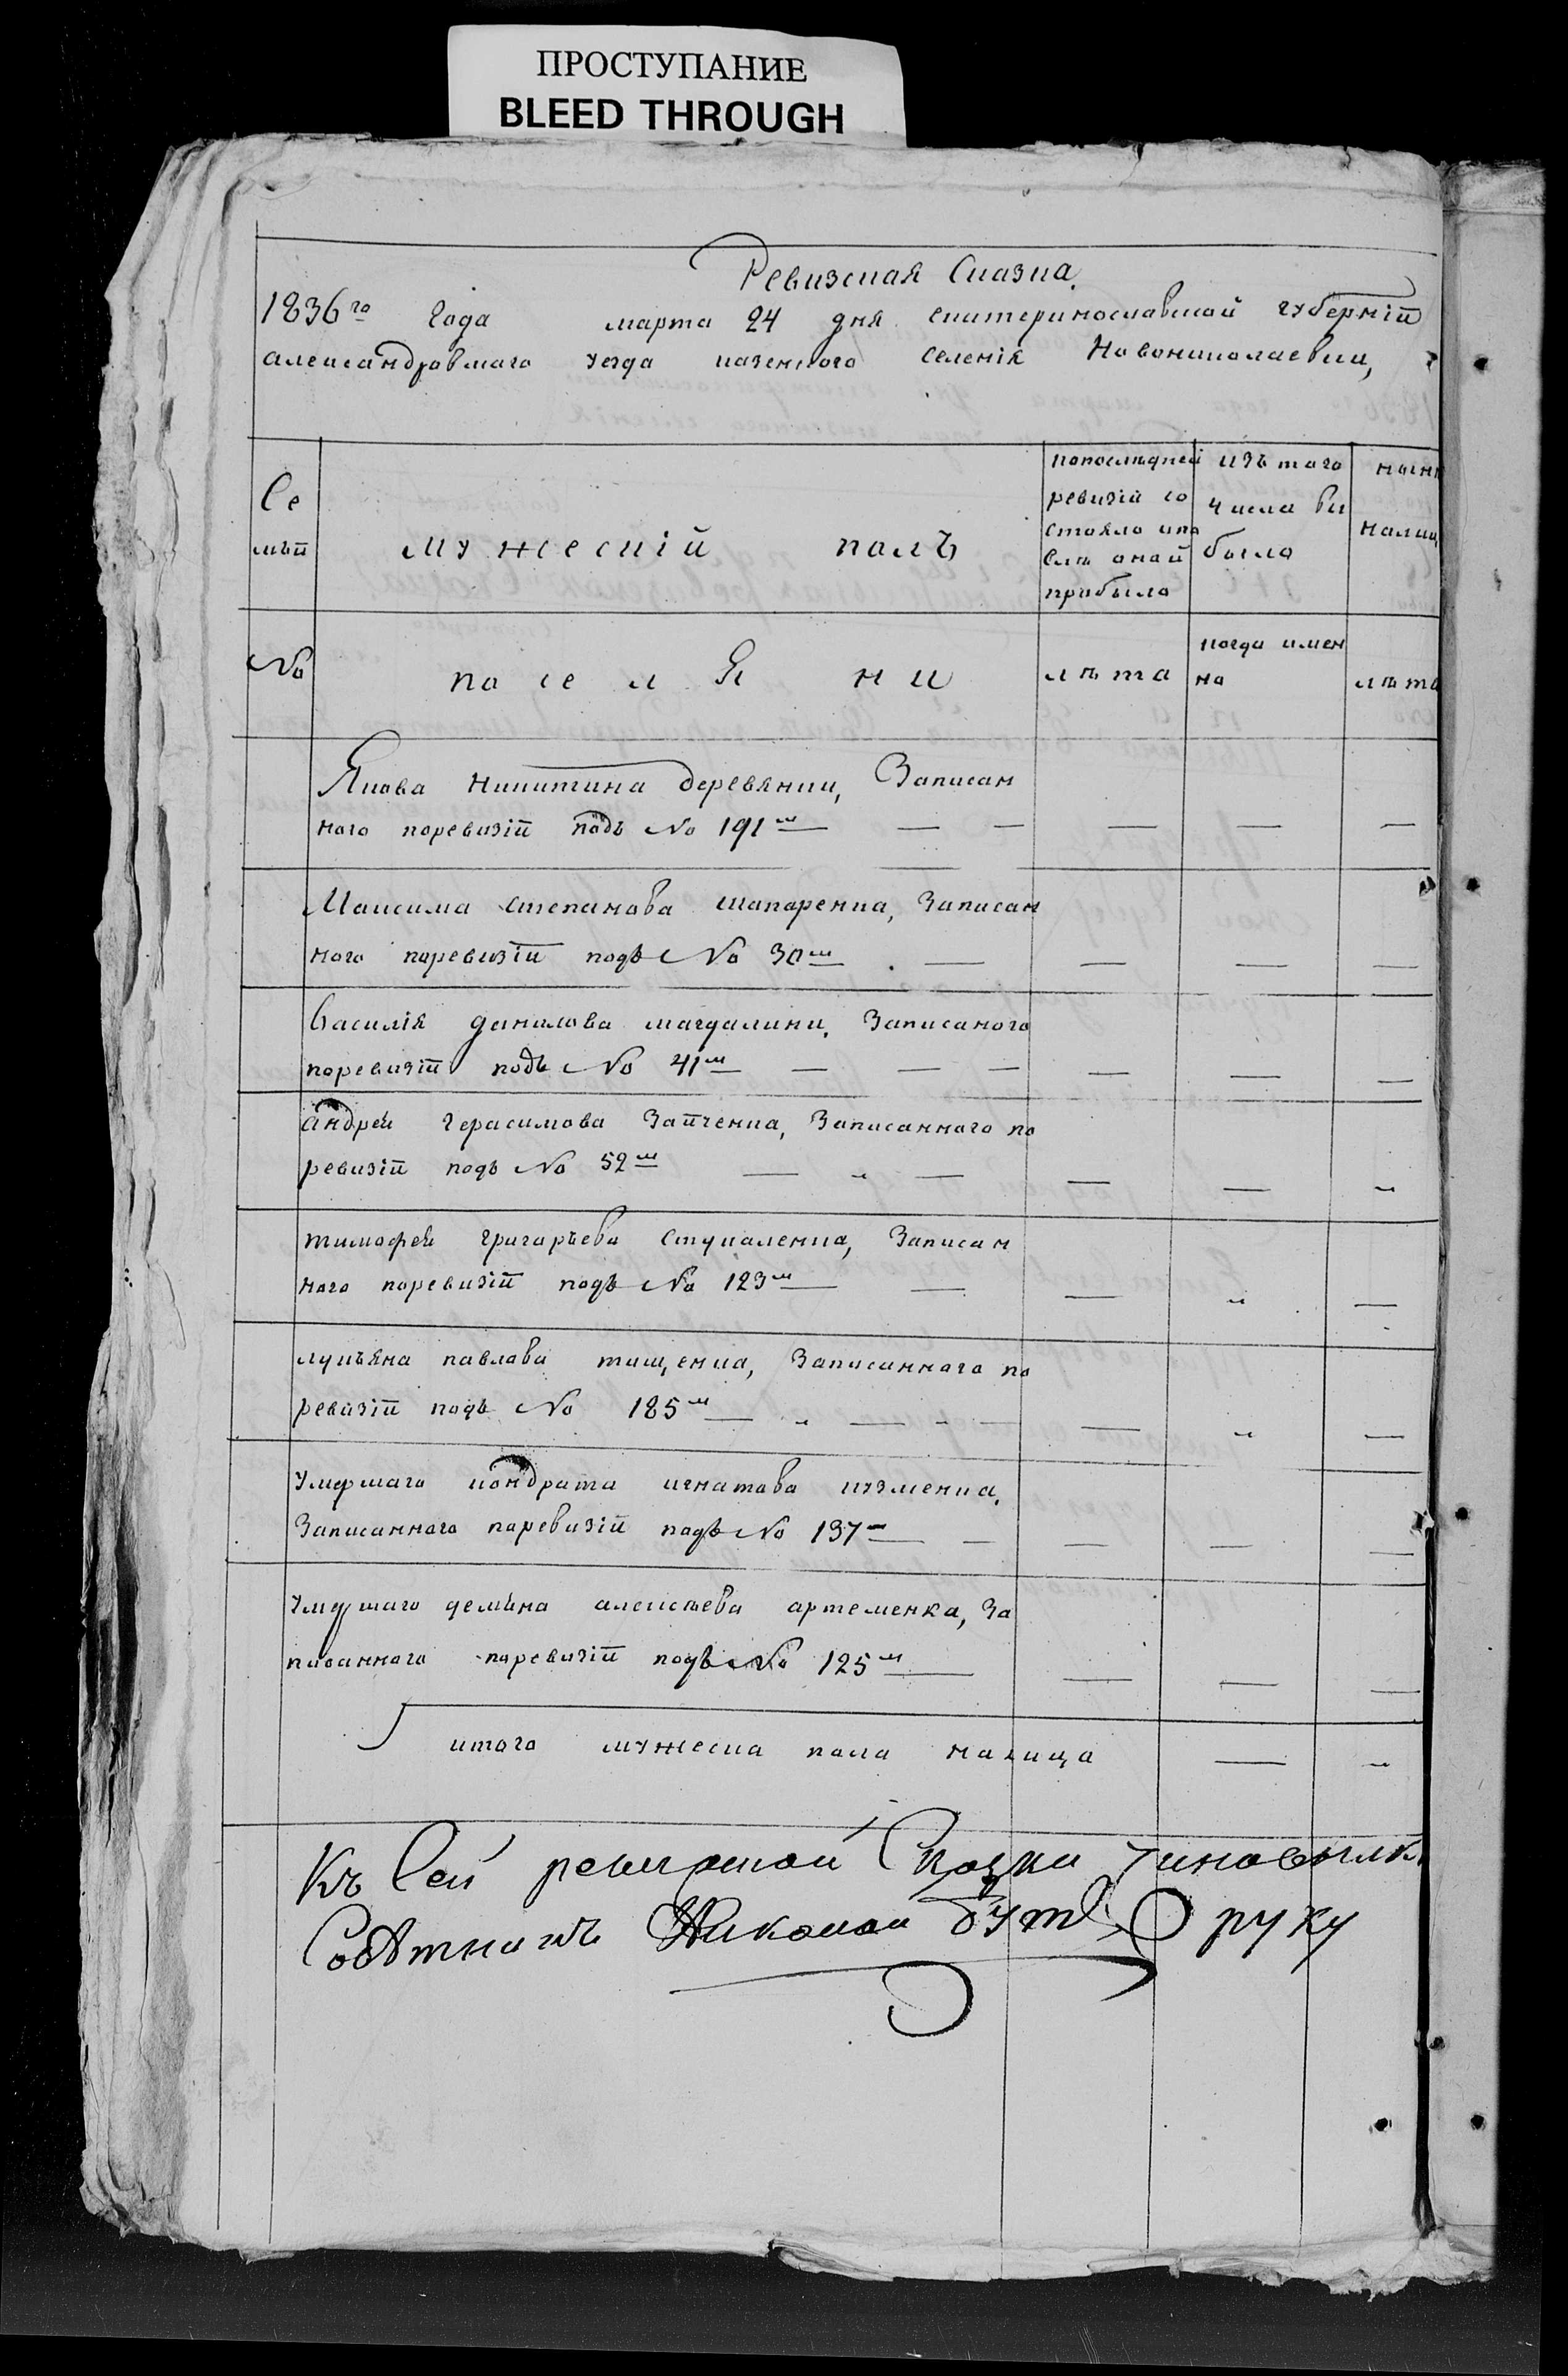 ПРОСТУПАНИЕ
BLEED THROUGH
Ревизская Сказка.
1836го Года марта 24 дня екатеринославской губерніи
александровскаго уезда казенного селенія Новониколаевки,
Се
мьи
мужескій полъ
попоследней
ревизіи со
стояло ипо
сле оной
прибыло
изъ того
числа вы
было
налиц
№
поселяни
лѣта
когда имен
но
лѣта
Якова Никитина деревянки, Записан
ного поревизіи подъ № 191м
Максима степанова шапаренка, Записан
ного поревизіи подъ № 30м
Василія данилова магдалини, Записаного
поревизіи подъ № 41м
андрея Герасимова Зайченка, Записанного по
ревизіи подъ № 52м
тимофея григорьева стукаленка, Записан
ного поревизіи подъ № 123м
лукьяна павлова тищенка, Записанного по
ревизіи подъ № 185м
Умершаго кондрата игнатова кузменка,
Записанного поревизіи подъ № 137м
Умершаго демяна алексеева артеменка, За
писанного поревизіи подъ № 125м
итого мужеска пола налицо
Къ Сей ревизской Сказки
Николай руку